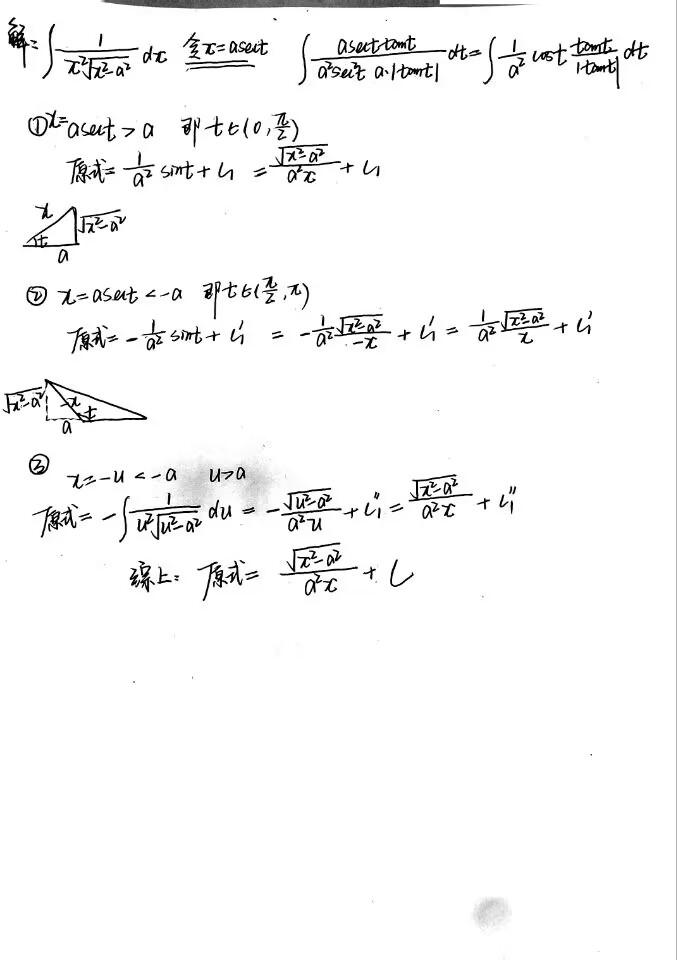 解: ∫ 1/(x²√(x²-a²)) dx 令x=asect ∫ (asect·tant)/(a²sec²t a·|tant|) dt = ∫ 1/a² cost tant/|tant| dt
① x=asect > a 即 t∈(0, π/2)
原式 = 1/a² sint + C₁ = √(x²-a²)/(a²x) + C₁
x t a √(x²-a²)
② x=asect < -a 即 t∈(π/2, π)
原式 = -1/a² sint + C₁' = -1/a² √(x²-a²)/(-x) + C₁' = 1/a² √(x²-a²)/x + C₁'
√(x²-a²) -x t a
③ x=-u < -a u>a
原式 = -∫ 1/(u²√(u²-a²)) du = -√(u²-a²)/(a²u) + C₁'' = √(x²-a²)/(a²x) + C₁''
综上: 原式 = √(x²-a²)/(a²x) + C